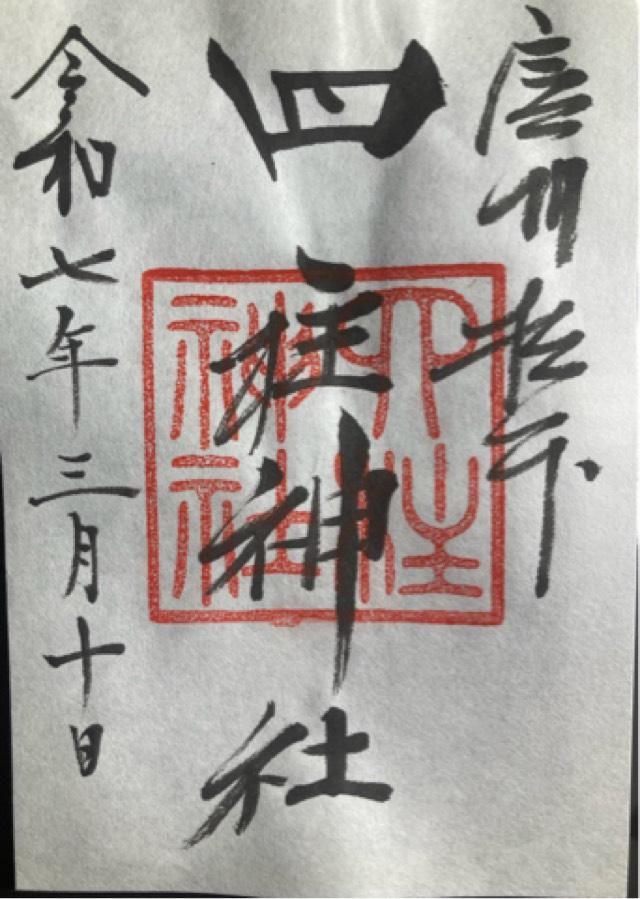 信州松本
四柱神社
四柱神社
令和七年三月十日